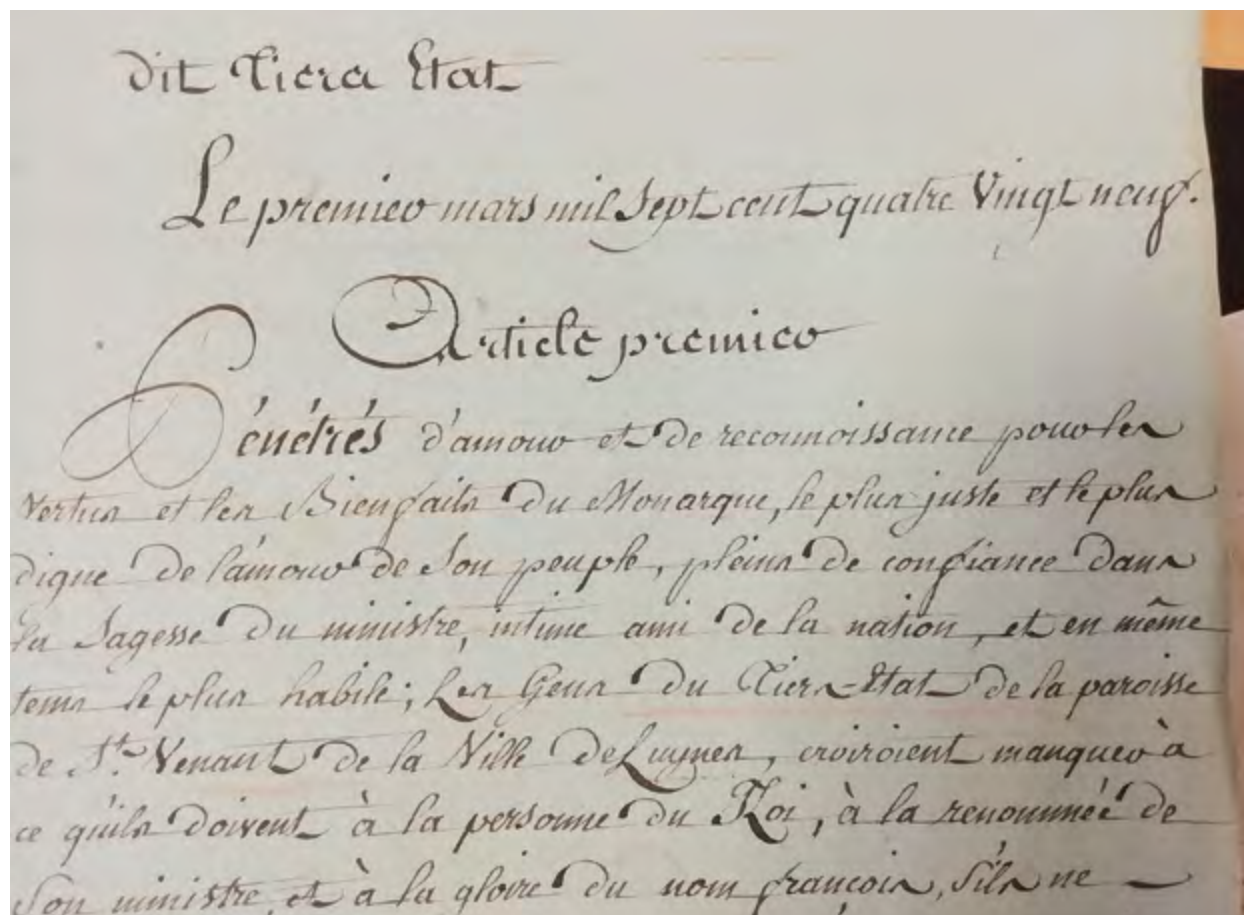 dit Tiers Etat
Le premier mars mil Sept cent quatre Vingt neuf.
Article premier
Pénétrés d'amour et de reconnoissance pour les
vertus et les Bienfaits du Monarque, le plus juste et le plus
digne de l'amour de Son peuple, pleins de confiance dans
la Sagesse du ministre, intime ami de la nation, et en même
tems le plus habile; Les Gens du Tiers-Etat de la paroisse
de St. Venant de la Ville de Luynes, croiroient manquer à
ce qu'ils doivent à la personne du Roi, à la renommée de
Son ministre, et à la gloire du nom françois, S'ils ne